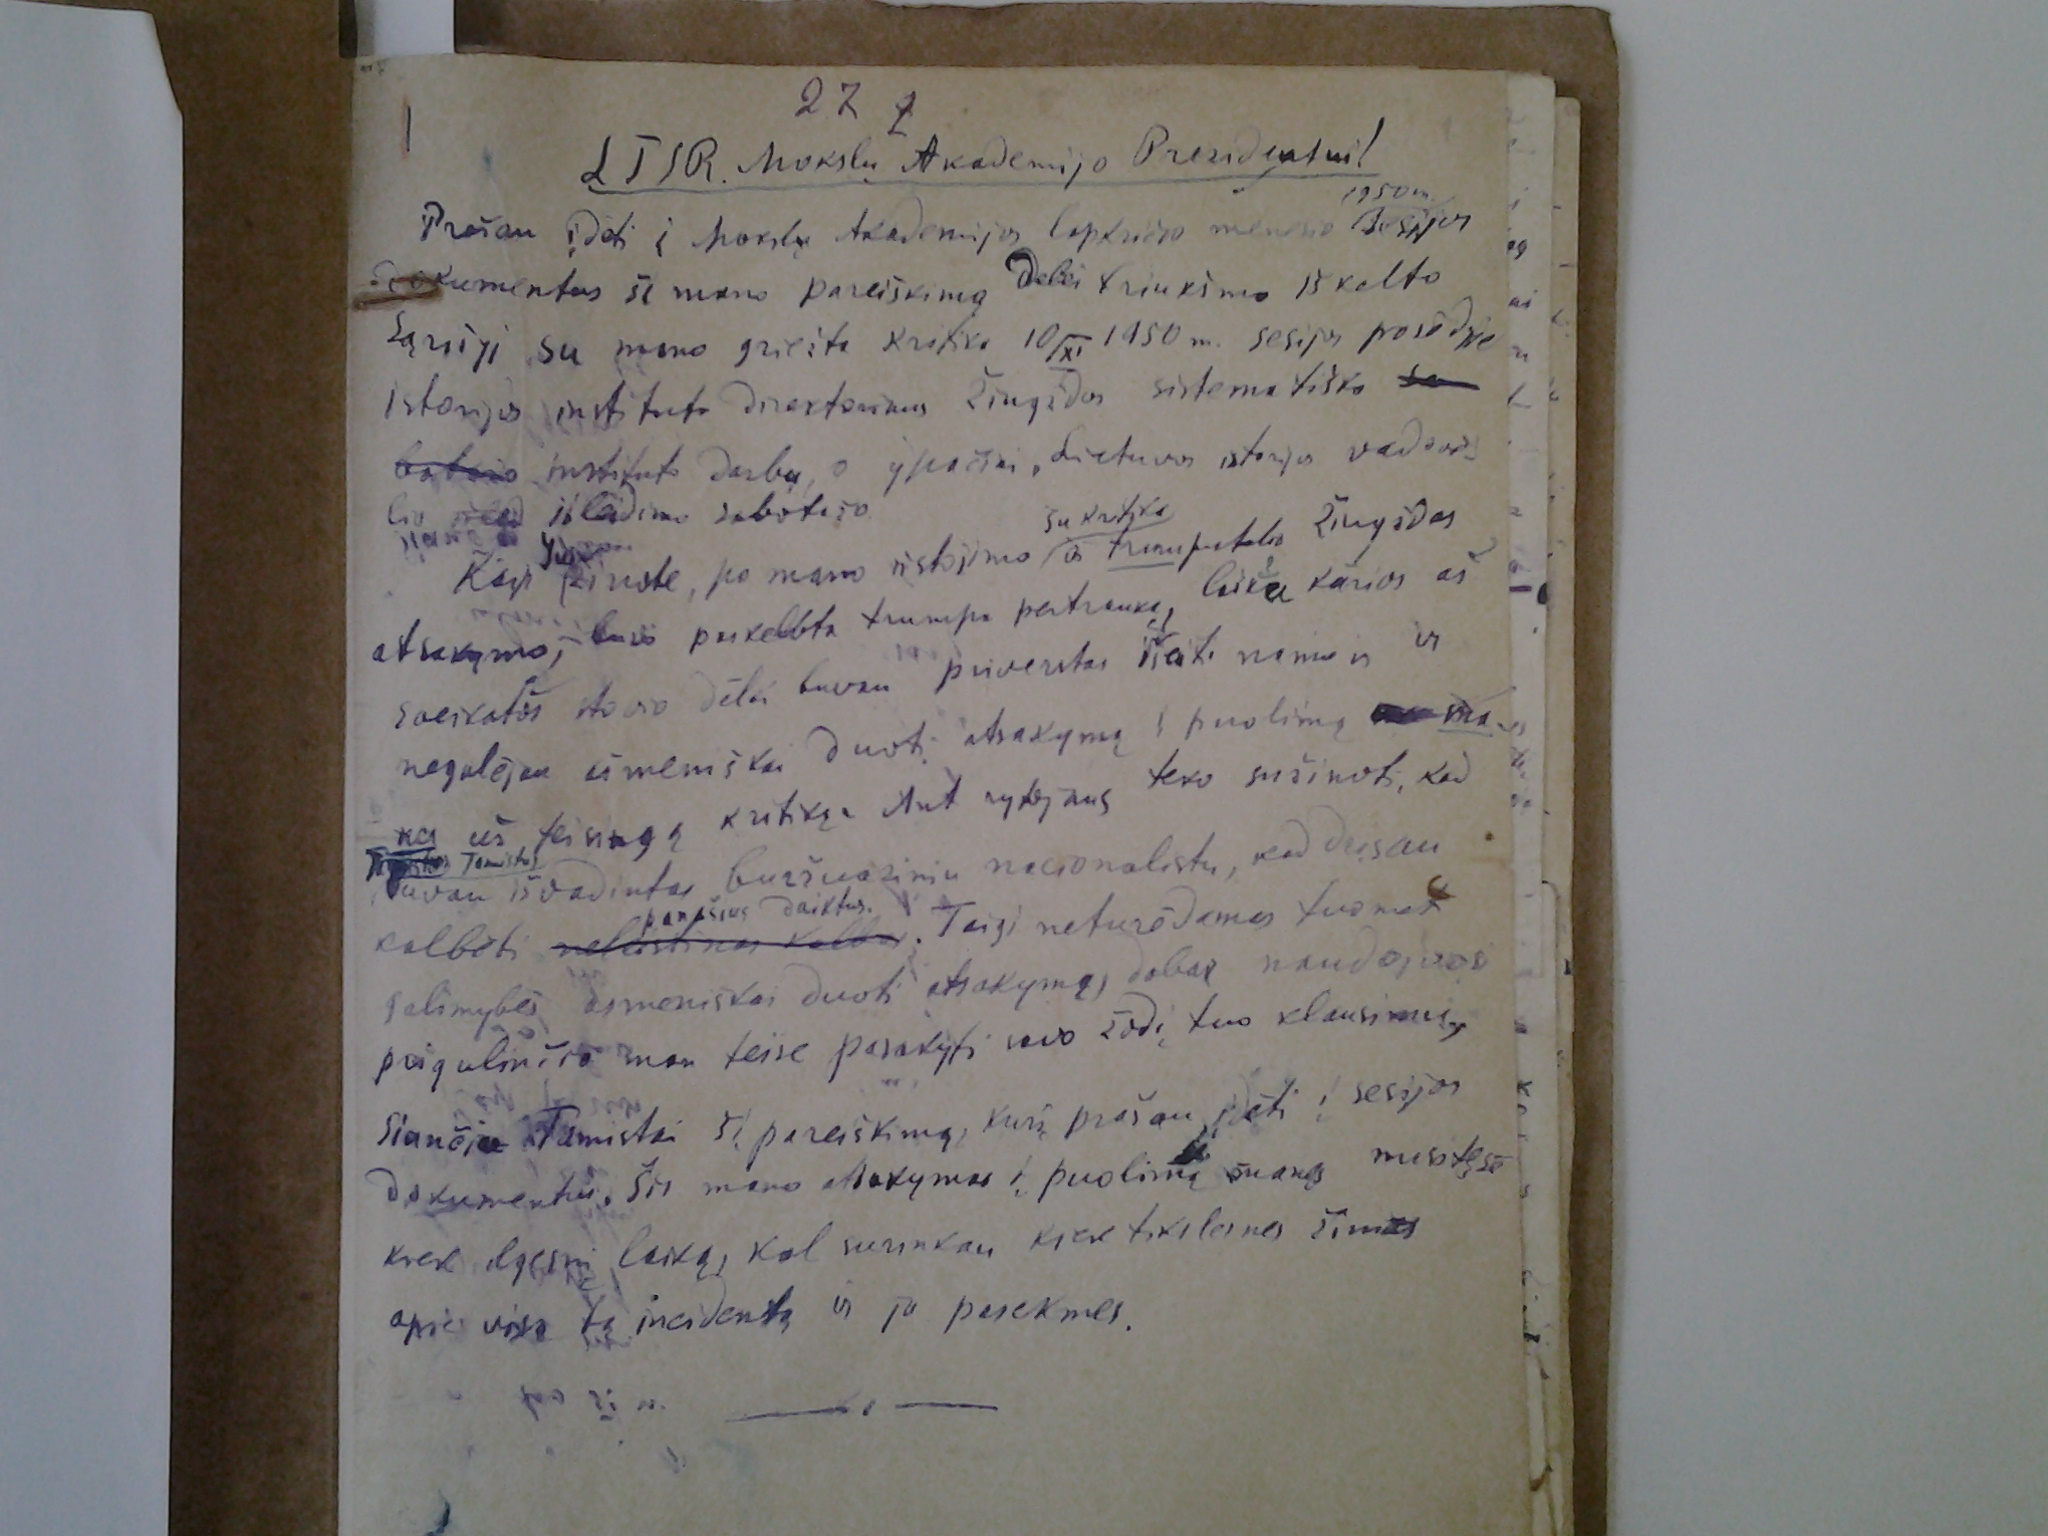 27
LTSR Mokslų Akademijo Prezidentui!
1950 m.
Prašau įdėti į Mokslų Akademijos lapkričio mėnesio Sesijos
dokumentus šį mano pareiškimą dėlei triukšmo iškelto
Sąryšyj su mano griežta kritika 10/XI 1950 m. sesijos posėdyje
Istorijos instituto direktoriaus Žiugždos sistematiško
instituto darbų, o ypačiai, Lietuvos istorijos vadovė
lio išleidimo sabotažo.
su kritika
Kaip žinote, po mano išstojimo ir trumputėlio Žiugždos
atsakymo, buvo paskelbta trumpa pertrauka, laike kurios aš
sveikatos stovio dėlei buvau priverstas išeiti namo ir
negalėjau asmeniškai duoti atsakymą į puolimą ma-
nęs už teisingą kritiką. Ant rytojaus teko sužinoti, kad
Tamistos
buvau išvadintas buržuaziniu nacionalistu, kad drįsau
panašius daiktus.
kalbėti . Taigi neturėdamas tuomet
galimybės asmeniškai duoti atsakymą, dabar naudojuosi
prigulinčia man teise pasakyti savo žodį tuo klausimu,
Siančia Tamistai šį pareiškimą, kurį prašau įdėti į sesijos
dokumentus. Šis mano atsakymas į puolimą manęs nusitęsė
kiek ilgesnį laiką, kol surinkau kiek tikslesnes žinias
apie visą tą incidentą ir jo pasekmes.